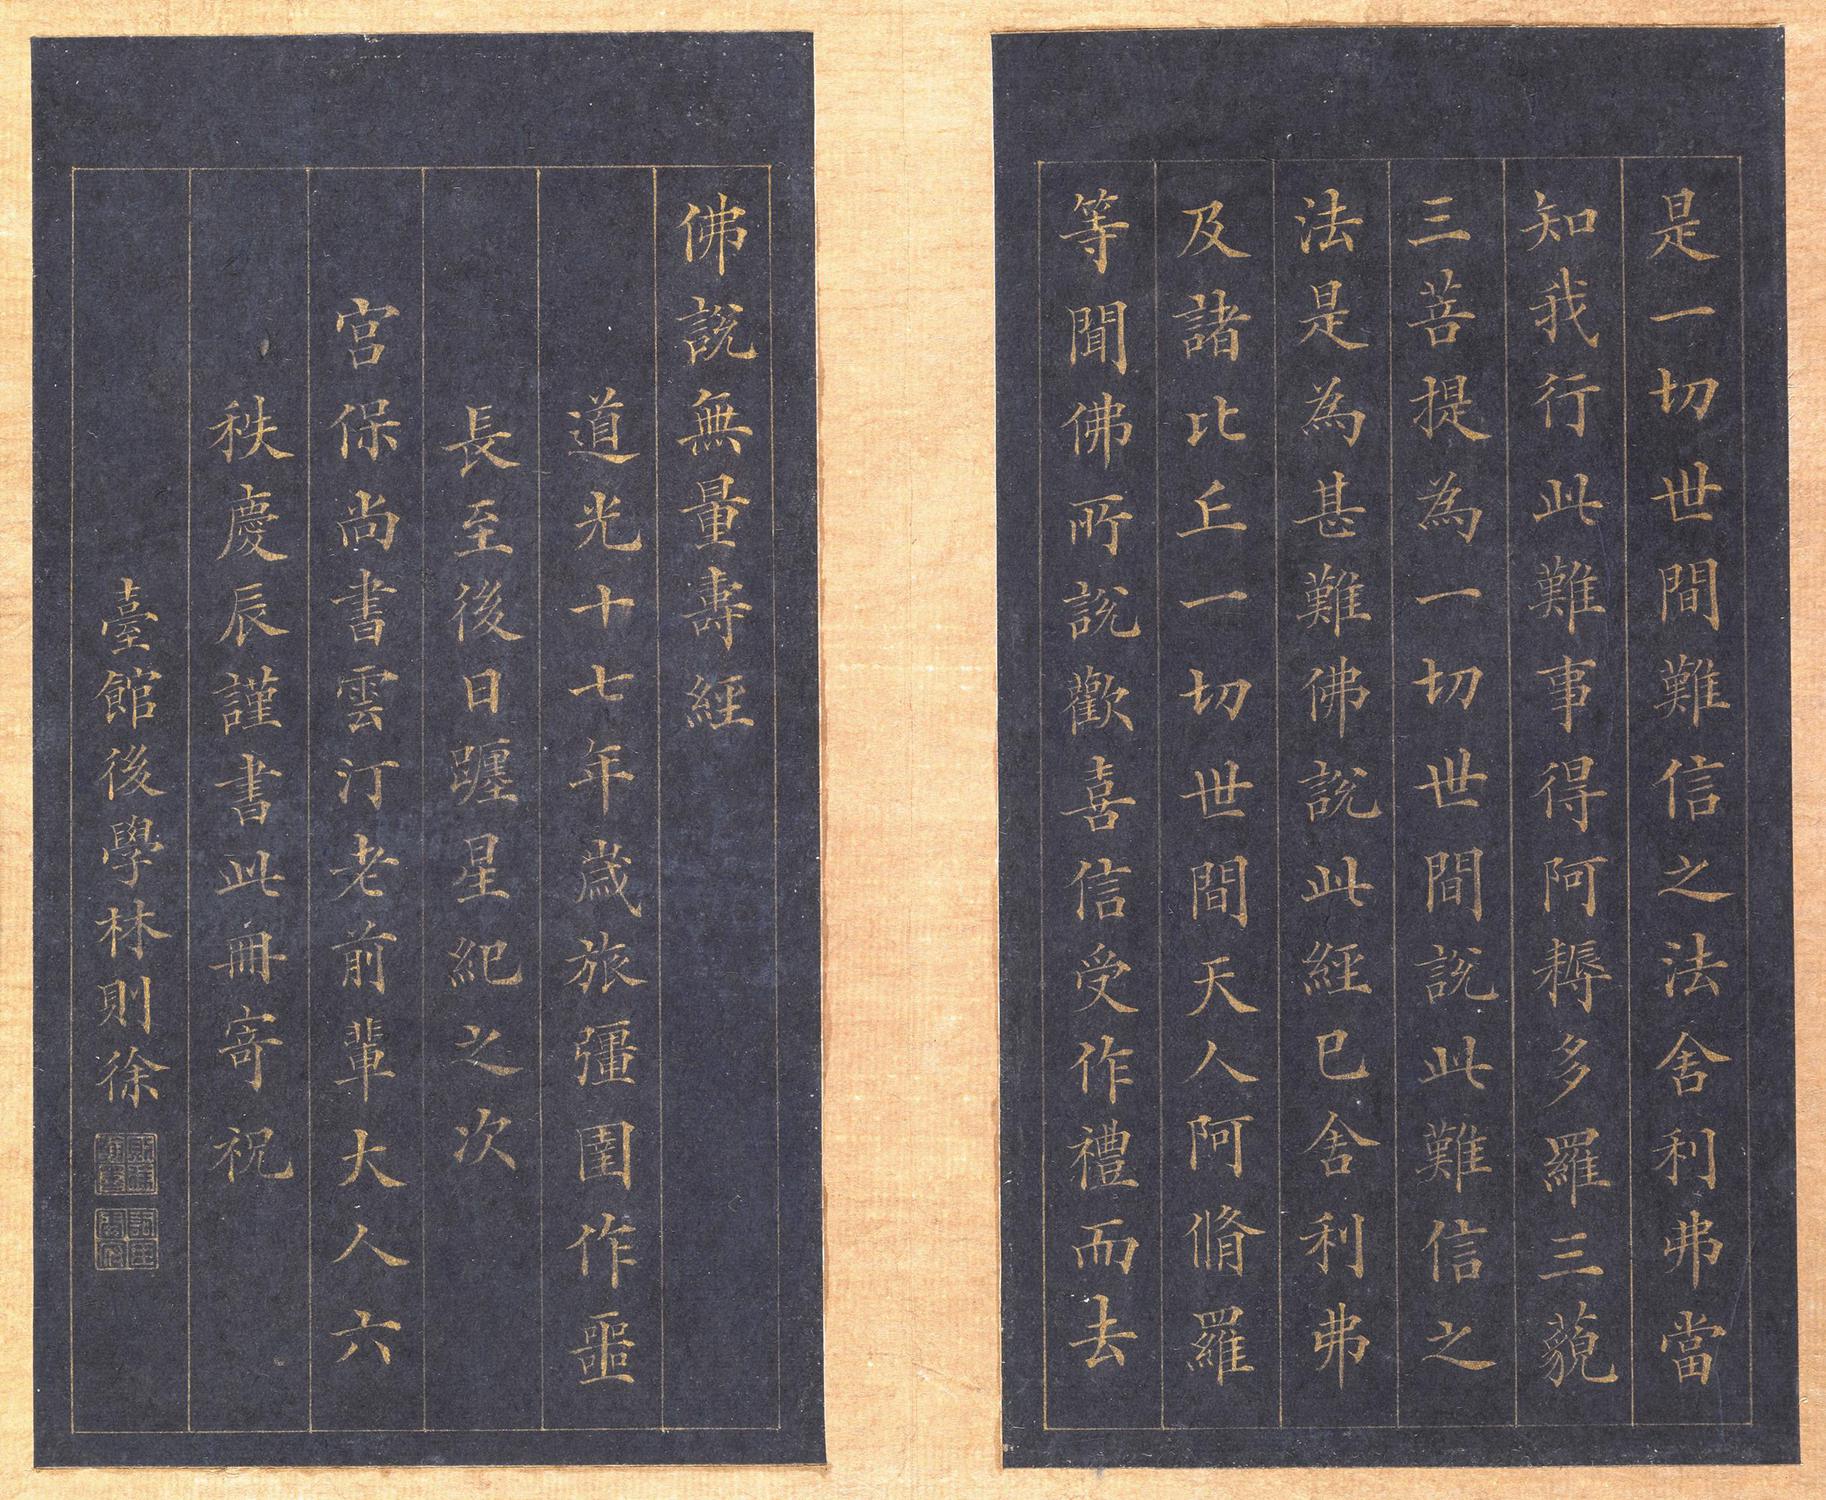 是一切世間難信之法舍利弗當
知我行此難事得阿耨多羅三藐
三菩提為一切世間說此難信之
法是為甚難佛說此經已舍利弗
及諸比丘一切世間天人阿脩羅
等聞佛所說歡喜信受作禮而去
佛說無量壽經
道光十七年歲旅彊圉作噩
長至後日躔星紀之次
宮保尚書雲汀老前輩大人六
秩慶辰謹書此冊寄祝
臺館後學林則徐